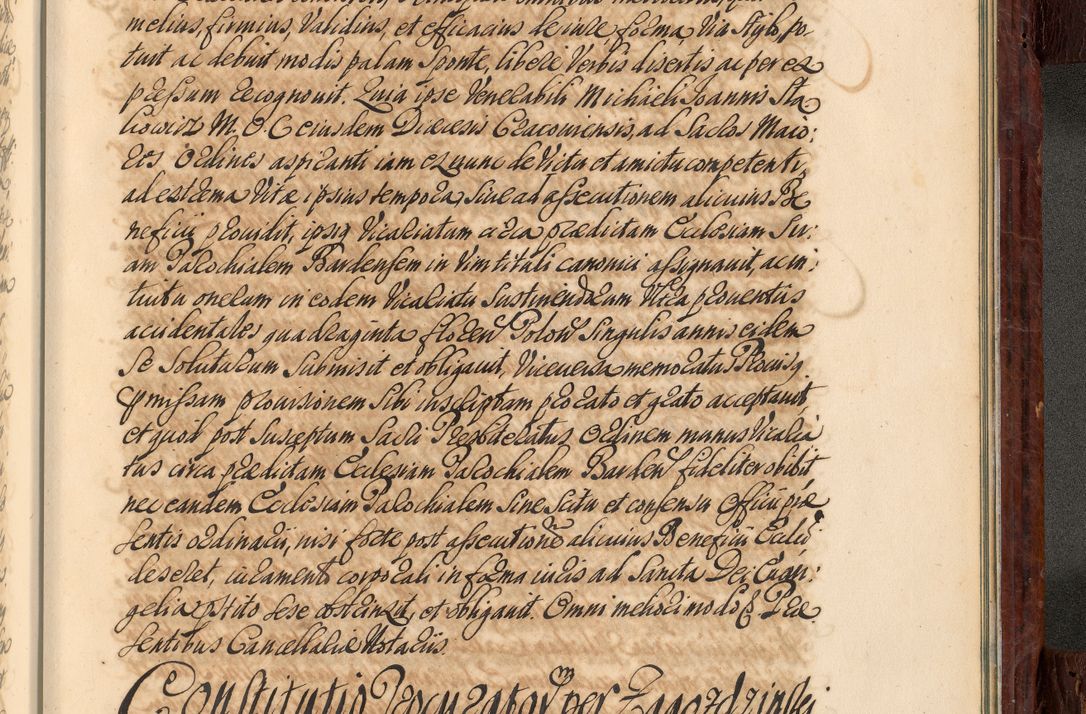 melius, firmius, Validius, et efficacius de iure forma, Via Stylo, po-
tuit ac debuit modis palam Sponte, libere Verbis disertis ac per ex
pressum recognouit. Quia ipse Venerabili Michaeli Joannis Sta
chowicz M. O. C eiusdem Diœcesis Cracouiensis, ad Sacros Maio:
res Ordines aspiranti iam ex nunc de Victu et amictu competenti,
ad extrema Vitæ ipsius tempora, Siue ad assecutionem alicuius Be
neficii prouidit, ipsiq Vicariatum circa prædictam Ecclesiam Su:
am Parochialem Bardensem in Vim tituli canonici assignauit, ac in:
tuitu onerum in eodem Vicariatu Sustinendorum Vltra prouentus
accidentales quadraginta floren Polon Singulis annis eidem
Se Soluturum Submisit et obligauit, Viceuersa memoratus Prouisq
præmissam prouisionem Sibi inscriptam pro rato et grato acceptauit
et quod post Susceptum Sacri Præsbyteratus Ordinem munus Vicaria
tus circa prædictam Ecclesiam Parochialem Barden fideliter obibit
nec eandem Ecclesiam Parochialem Sine Scitu et consensu Officii præ
sentis ordinarii, nisi forte post assecutione alicuius Beneficii Eccli
deseret, iuramento corporali in forma iuris ad Sancta Dei Euan:
gelia pstito sese obstrinxit, et obligauit. Omni meliori modo &. Præ
sentibus Cancellariæ Notariis.
Constitutio Procuratorum per Zagorzdzinski